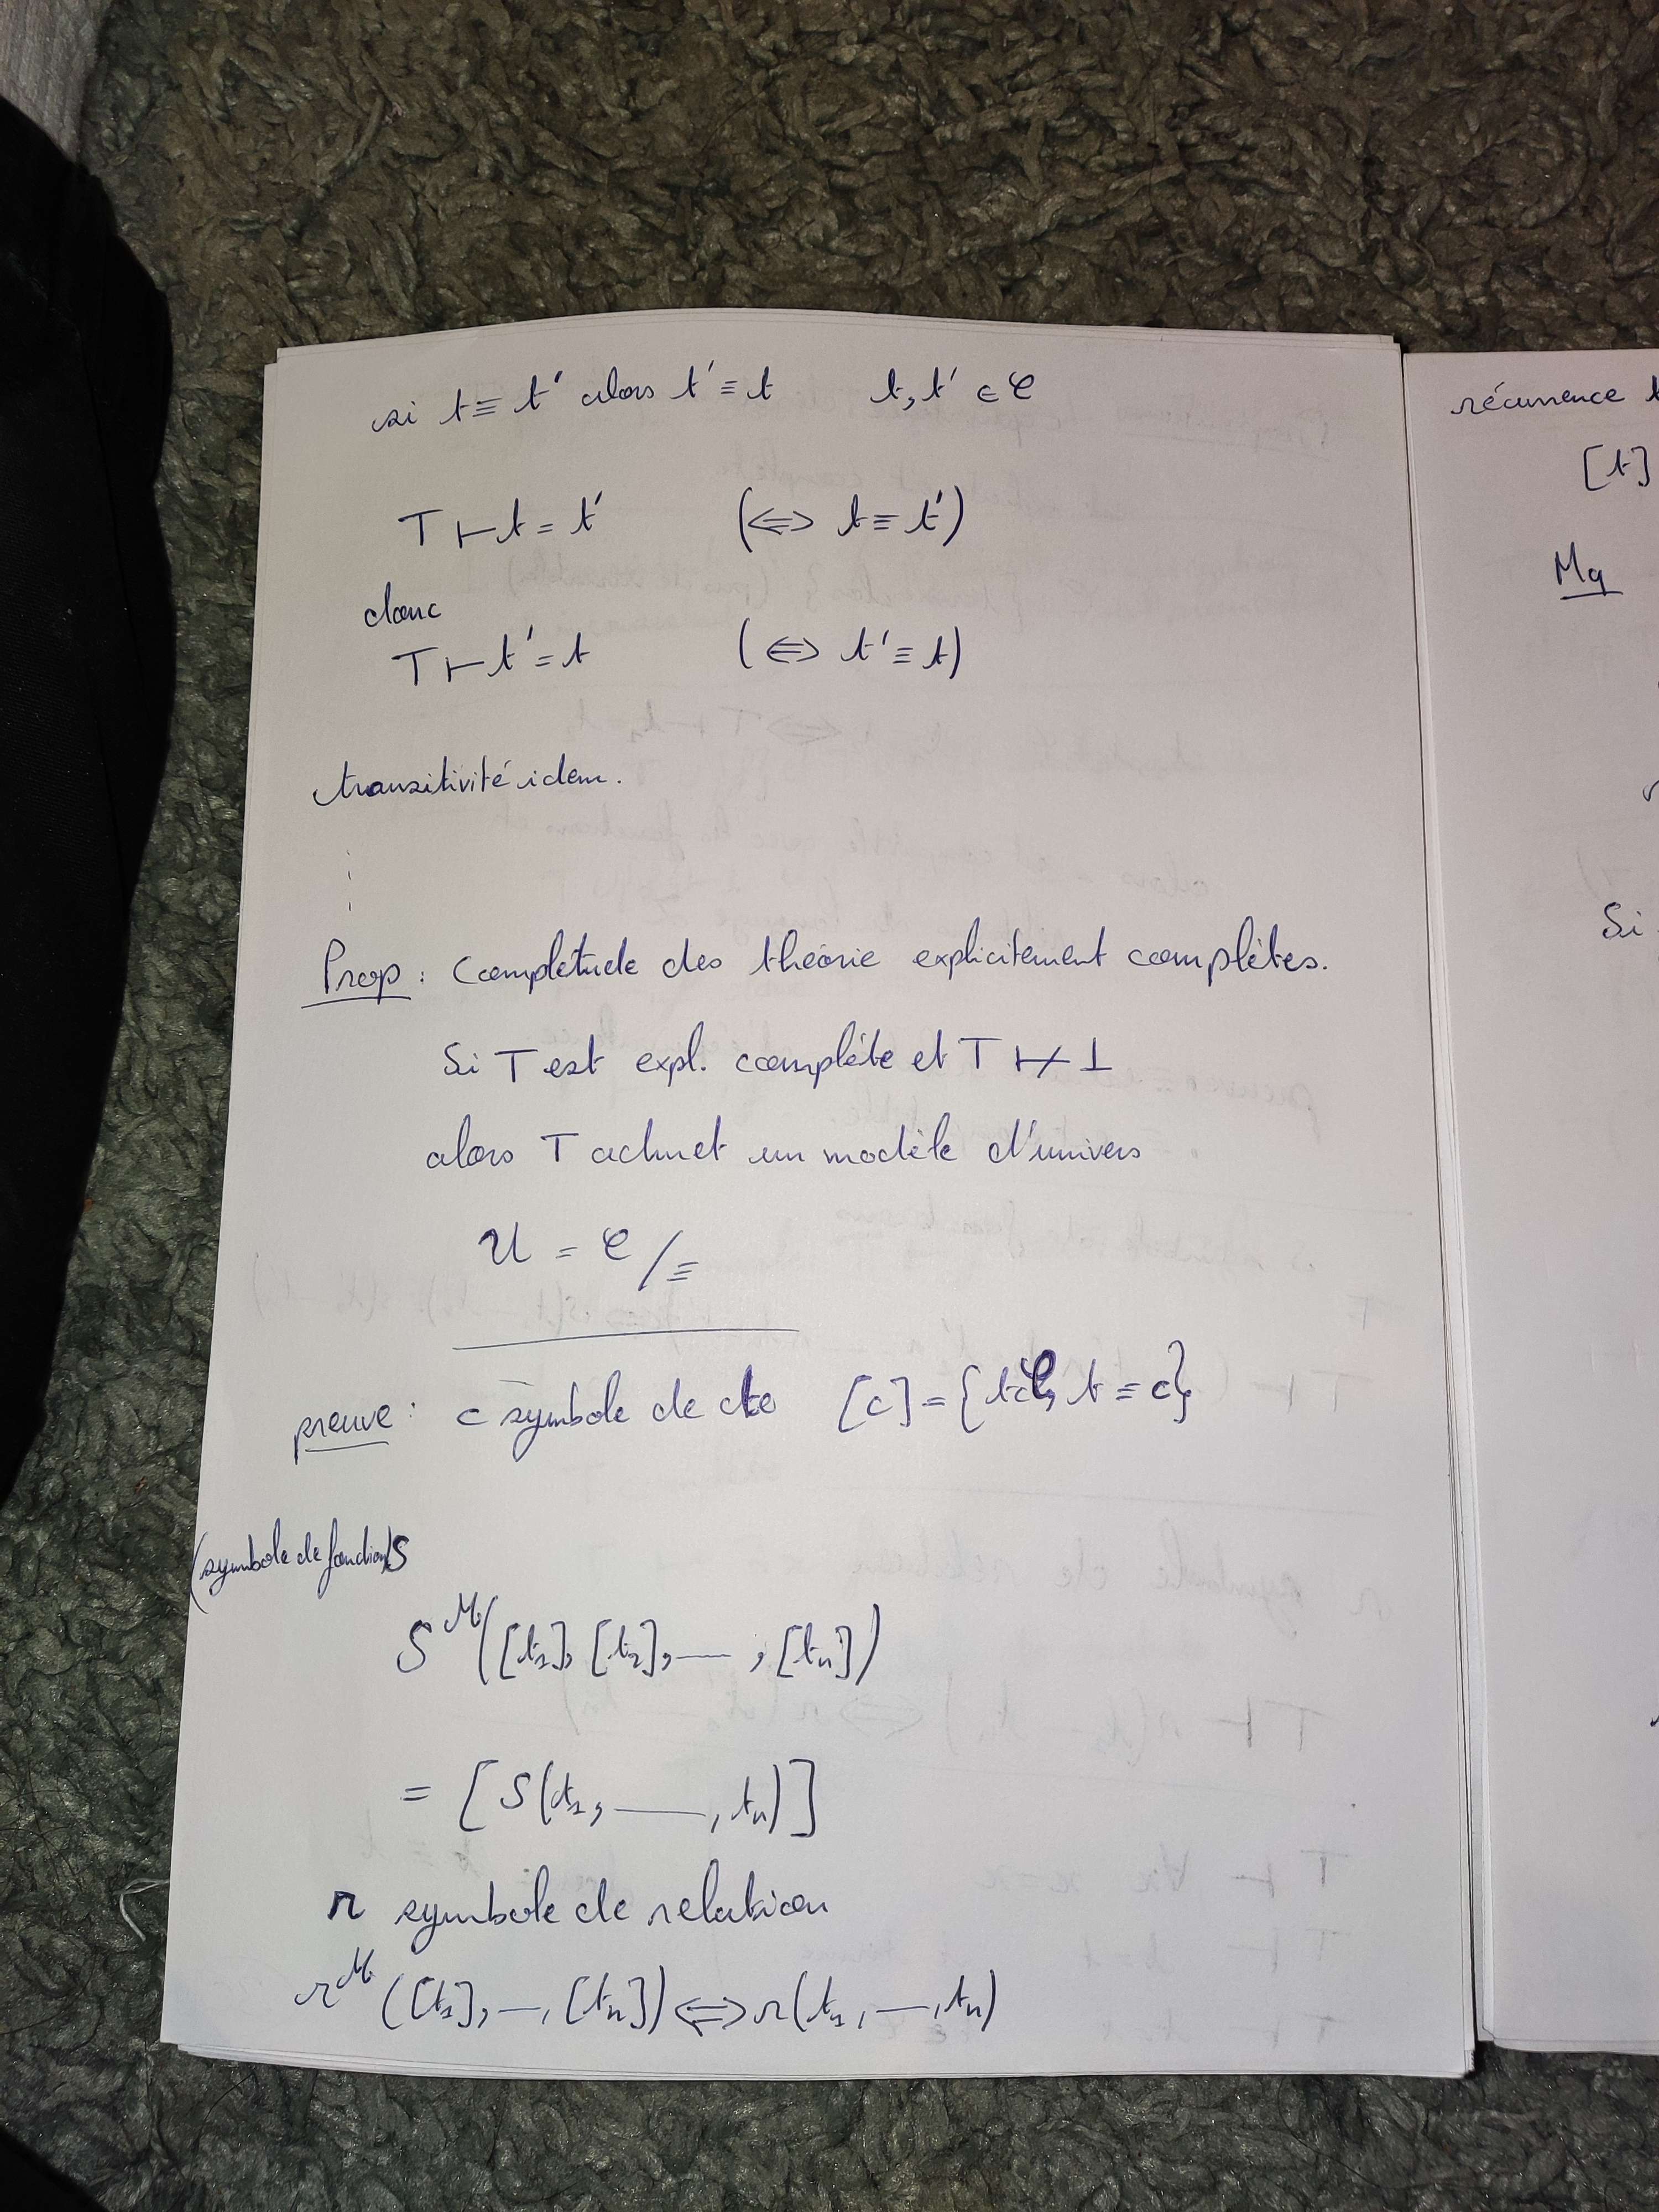 si t ≡ t' alors t' ≡ t t, t' ∈ 𝒞
T ⊢ t = t' (⇔ t ≡ t')
donc
T ⊢ t' = t (⇔ t' ≡ t)
transitivité idem.
Prop : Complétude des théorie explicitement complètes.
Si T est expl. complète et T ⊬ ⊥
alors T admet un modèle d'univers
U = 𝒞/≡
preuve : c symbole de cte [c] = {t∈𝒞, t ≡ c}
(symbole de fonction) S
S^M([t₁], [t₂], — , [tₙ])
= [S(t₁, —, tₙ)]
r symbole de relation
r^M([t₁], —, [tₙ]) ⇔ r(t₁, —, tₙ)
récurrence
[t]
Mq
Si